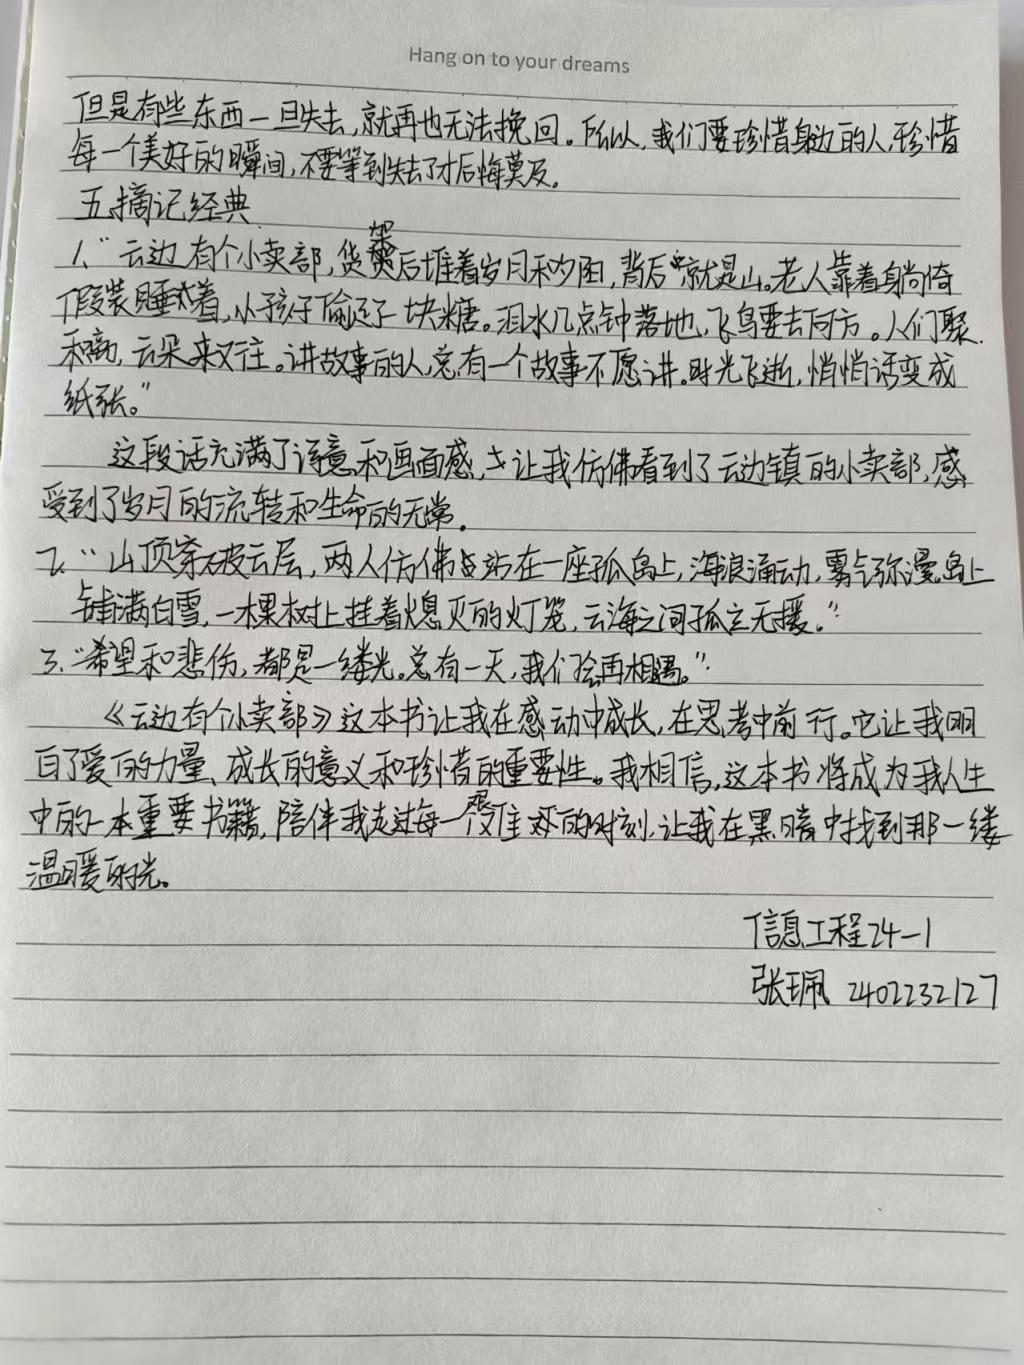 Hang on to your dreams
但是有些东西一旦失去，就再也无法挽回。所以，我们要珍惜身边的人，珍惜
每一个美好的瞬间，不要等到失去了才后悔莫及。
五、摘记经典
1、“云边有个小卖部，货架后堆着岁月和夕阳，背后就是山。老人靠着躺倚
假装睡着，小孩子偷走了一块糖。泪水几点钟落地，飞鸟要去何方。人们聚
和离，云朵来又往。讲故事的人，总有一个故事不愿讲。时光飞逝，悄悄话变成
纸张。”
这段话充满了诗意和画面感，让我仿佛看到了云边镇的小卖部，感
受到了岁月的流转和生命的无常。
2、“山顶穿破云层，两人仿佛站在一座孤岛上，海浪涌动，雾气弥漫。岛上
铺满白雪，一棵树上挂着熄灭的灯笼，云海之间孤立无援。”
3、“希望和悲伤，都是一缕光。总有一天，我们会再相遇。”
《云边有个小卖部》这本书让我在感动中成长，在思考中前行。它让我明
白了爱的力量、成长的意义和珍惜的重要性。我相信，这本书将成为我人生
中的一本重要书籍，陪伴我走过每一个艰难的时刻，让我在黑暗中找到那一缕
温暖的光。
信息工程24-1
张珮 2402232127